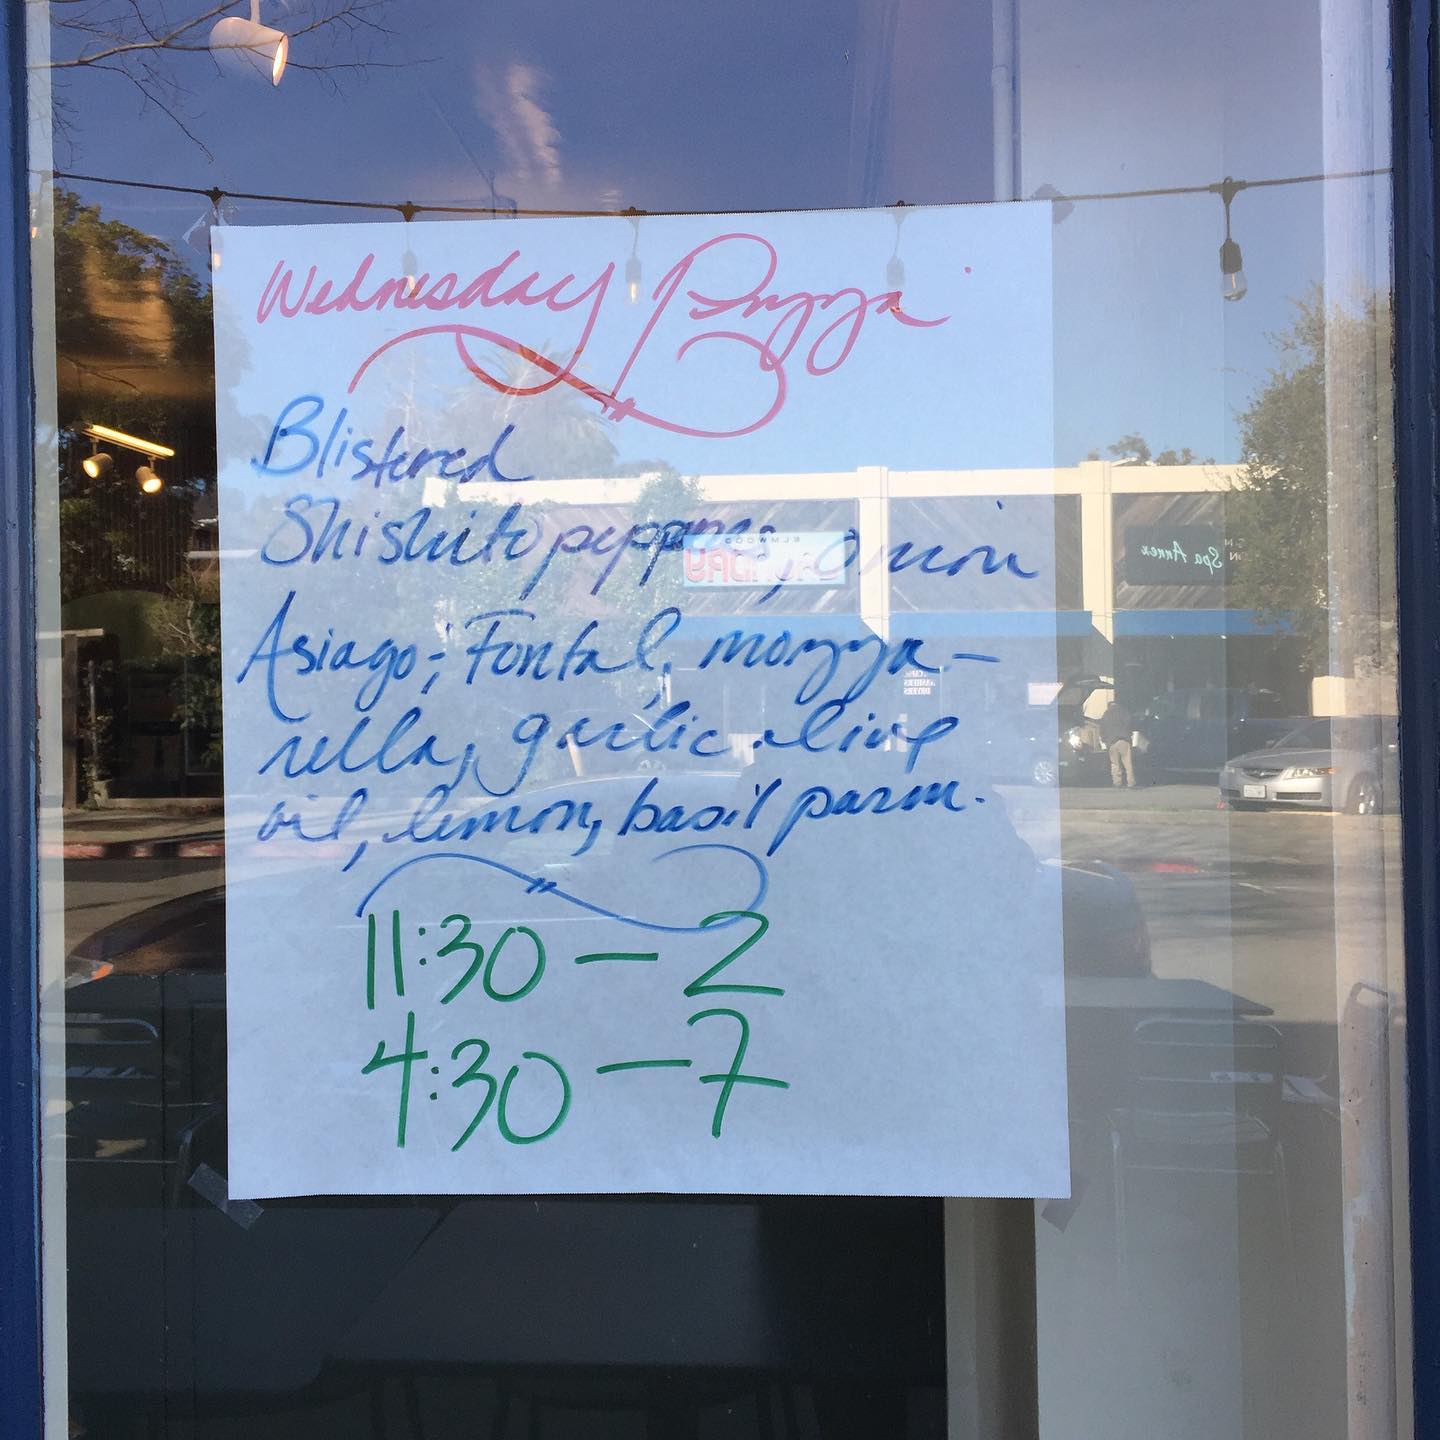 Wednesday Pizza
Blistered
Shishito peppers, Onion
Asiago, Fontal, mozza-
rella, garlic olive
oil, lemon, basil parm.
11:30 - 2
4:30 - 7
Spa Annex